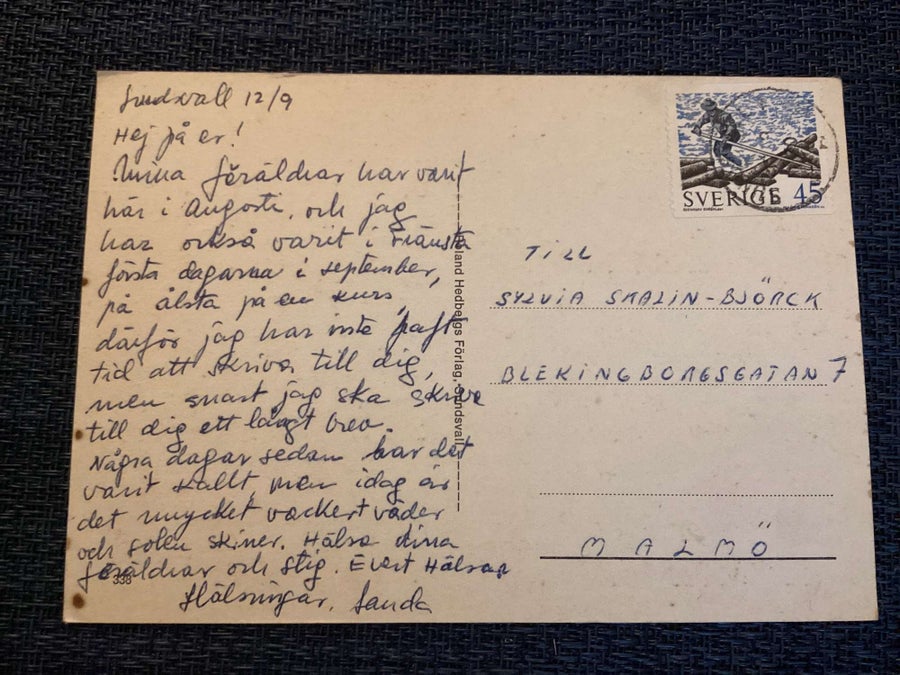 Sundsvall 12/9
Hej på er!
Mina föräldrar har varit
här i Augosti, och jag
har också varit i Fränsta
första dagarna i september,
på ålsta på en kurs,
därför jag har inte haft
tid att skriva till dig,
men snart jag ska skriva
till dig ett långt brev.
Några dagar sedan har det
varit kallt, men idag är
det mycket vackert väder
och solen skiner. Hälsa dina
föräldrar och Stig. Evert Hälsar
Hälsningar, Sanda
338
Hedbergs Förlag, Sundsvall
SVERIGE 45
TILL
SYLVIA SKALIN-BJÖRCK
BLEKINGBORGSGATAN 7
MALMÖ